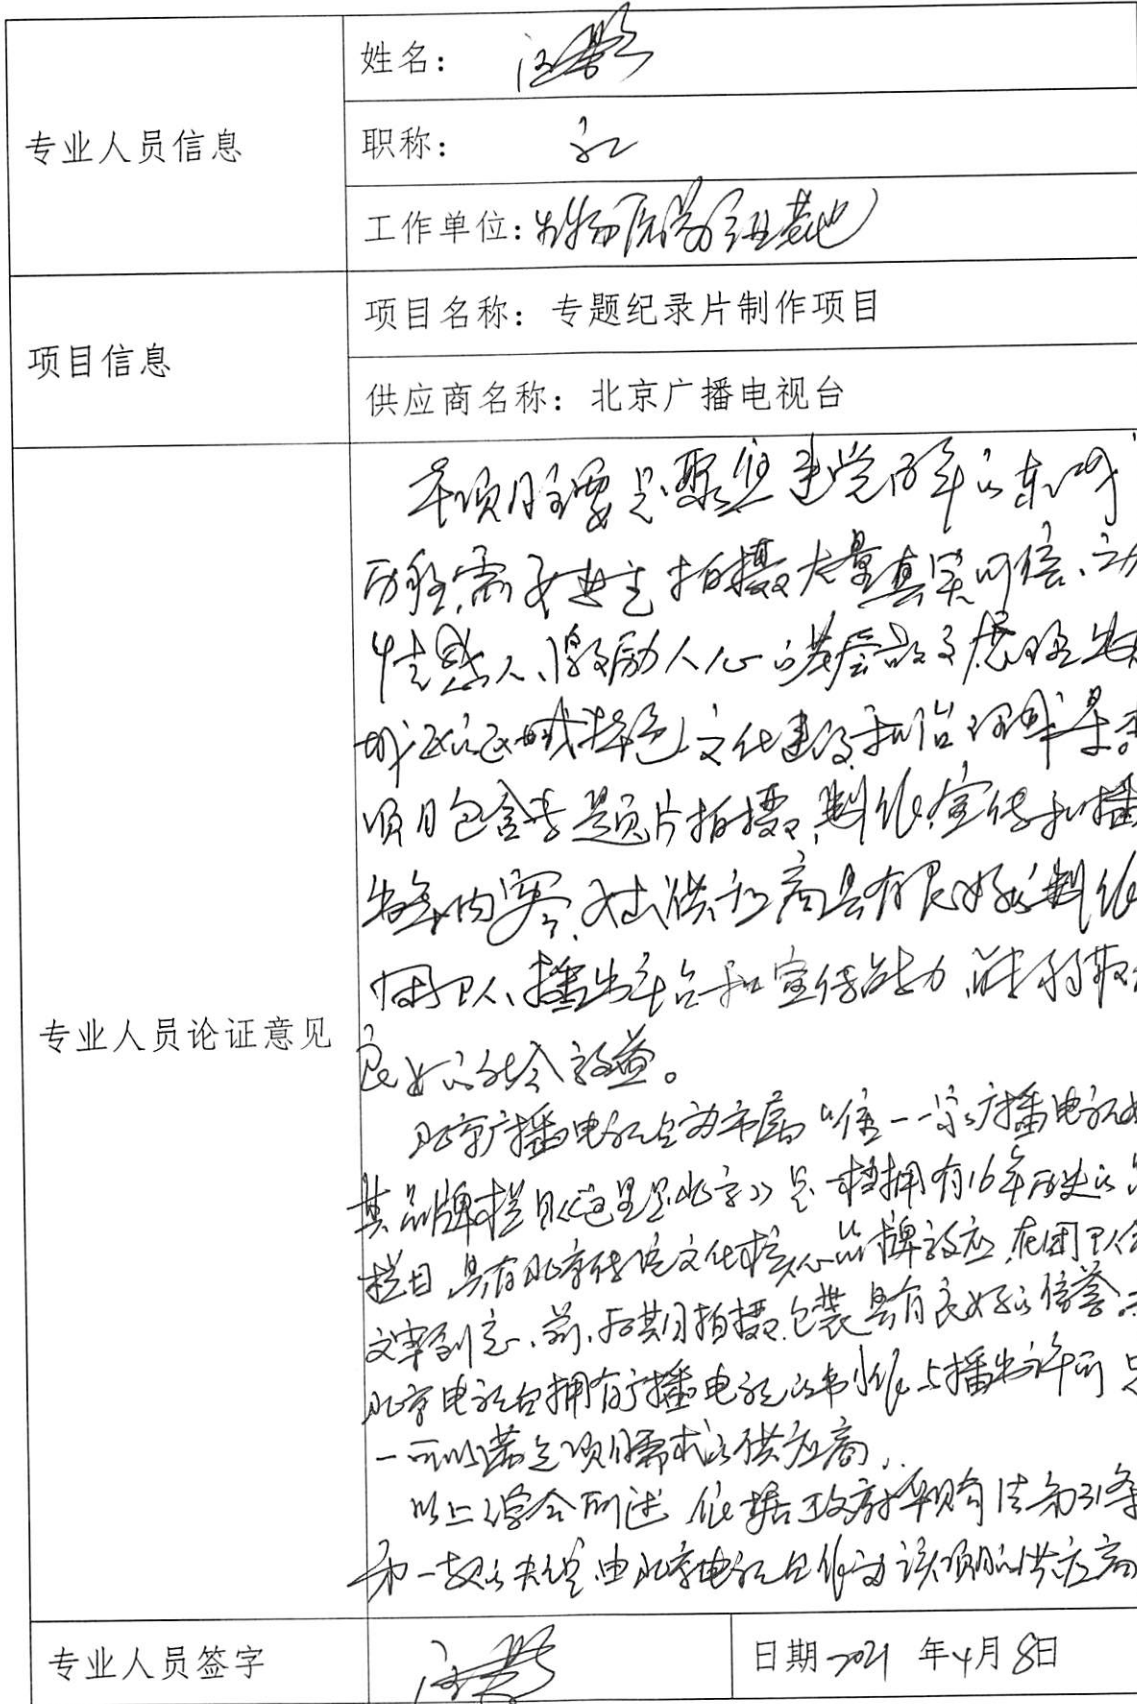 专业人员信息
姓名：
职称：
工作单位：生物医药基地
项目信息
项目名称：专题纪录片制作项目
供应商名称：北京广播电视台
专业人员论证意见
本项目主要是聚焦建党百年的东城
历程，需要业主拍摄大量真实可信、动
情感人、激励人心的基层故事展现
城区的区域特色、文化建设和治理成果。本
项目包含专题片拍摄、制作、宣传和播
出等内容，对供应商具有良好的制作
团队、播出平台和宣传能力，能够取得
良好的社会效益。
北京广播电视台为市属唯一一家广播电视
其品牌栏目《这里是北京》是一档拥有16年历史的品
栏目，具有北京传统文化核心品牌效应，在团队
文字创意、前、后期拍摄、包装具有良好的信誉。
北京电视台拥有广播电视的制作与播出许可，是
一可以满足项目需求的供应商。
以上综合所述，依据政府采购法第31条
第一款的决定，由北京电视台作为该项目的供应商
专业人员签字
日期 2021 年4月8日